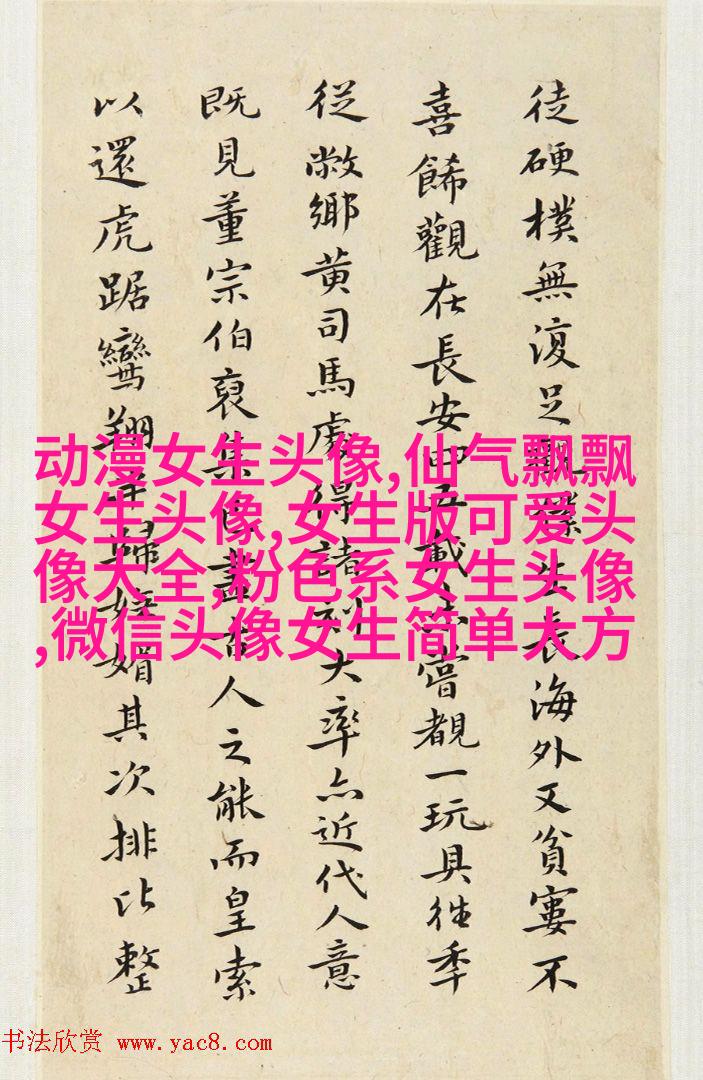 徒硬樸無復足生長海外又貧窶不
喜觀在長安嘗覩一玩具往年
從敝鄉黃司馬處得諸刻大率亦近代人意
既見董宗伯裒集古人之能而皇索
以還虎踞鸞翔媚其次排比整
动漫女生头像,仙气飘飘
女生头像,女生版可爱头
像大全,粉色系女生头像
,微信头像女生简单大方
书法欣赏 www.yac8.com